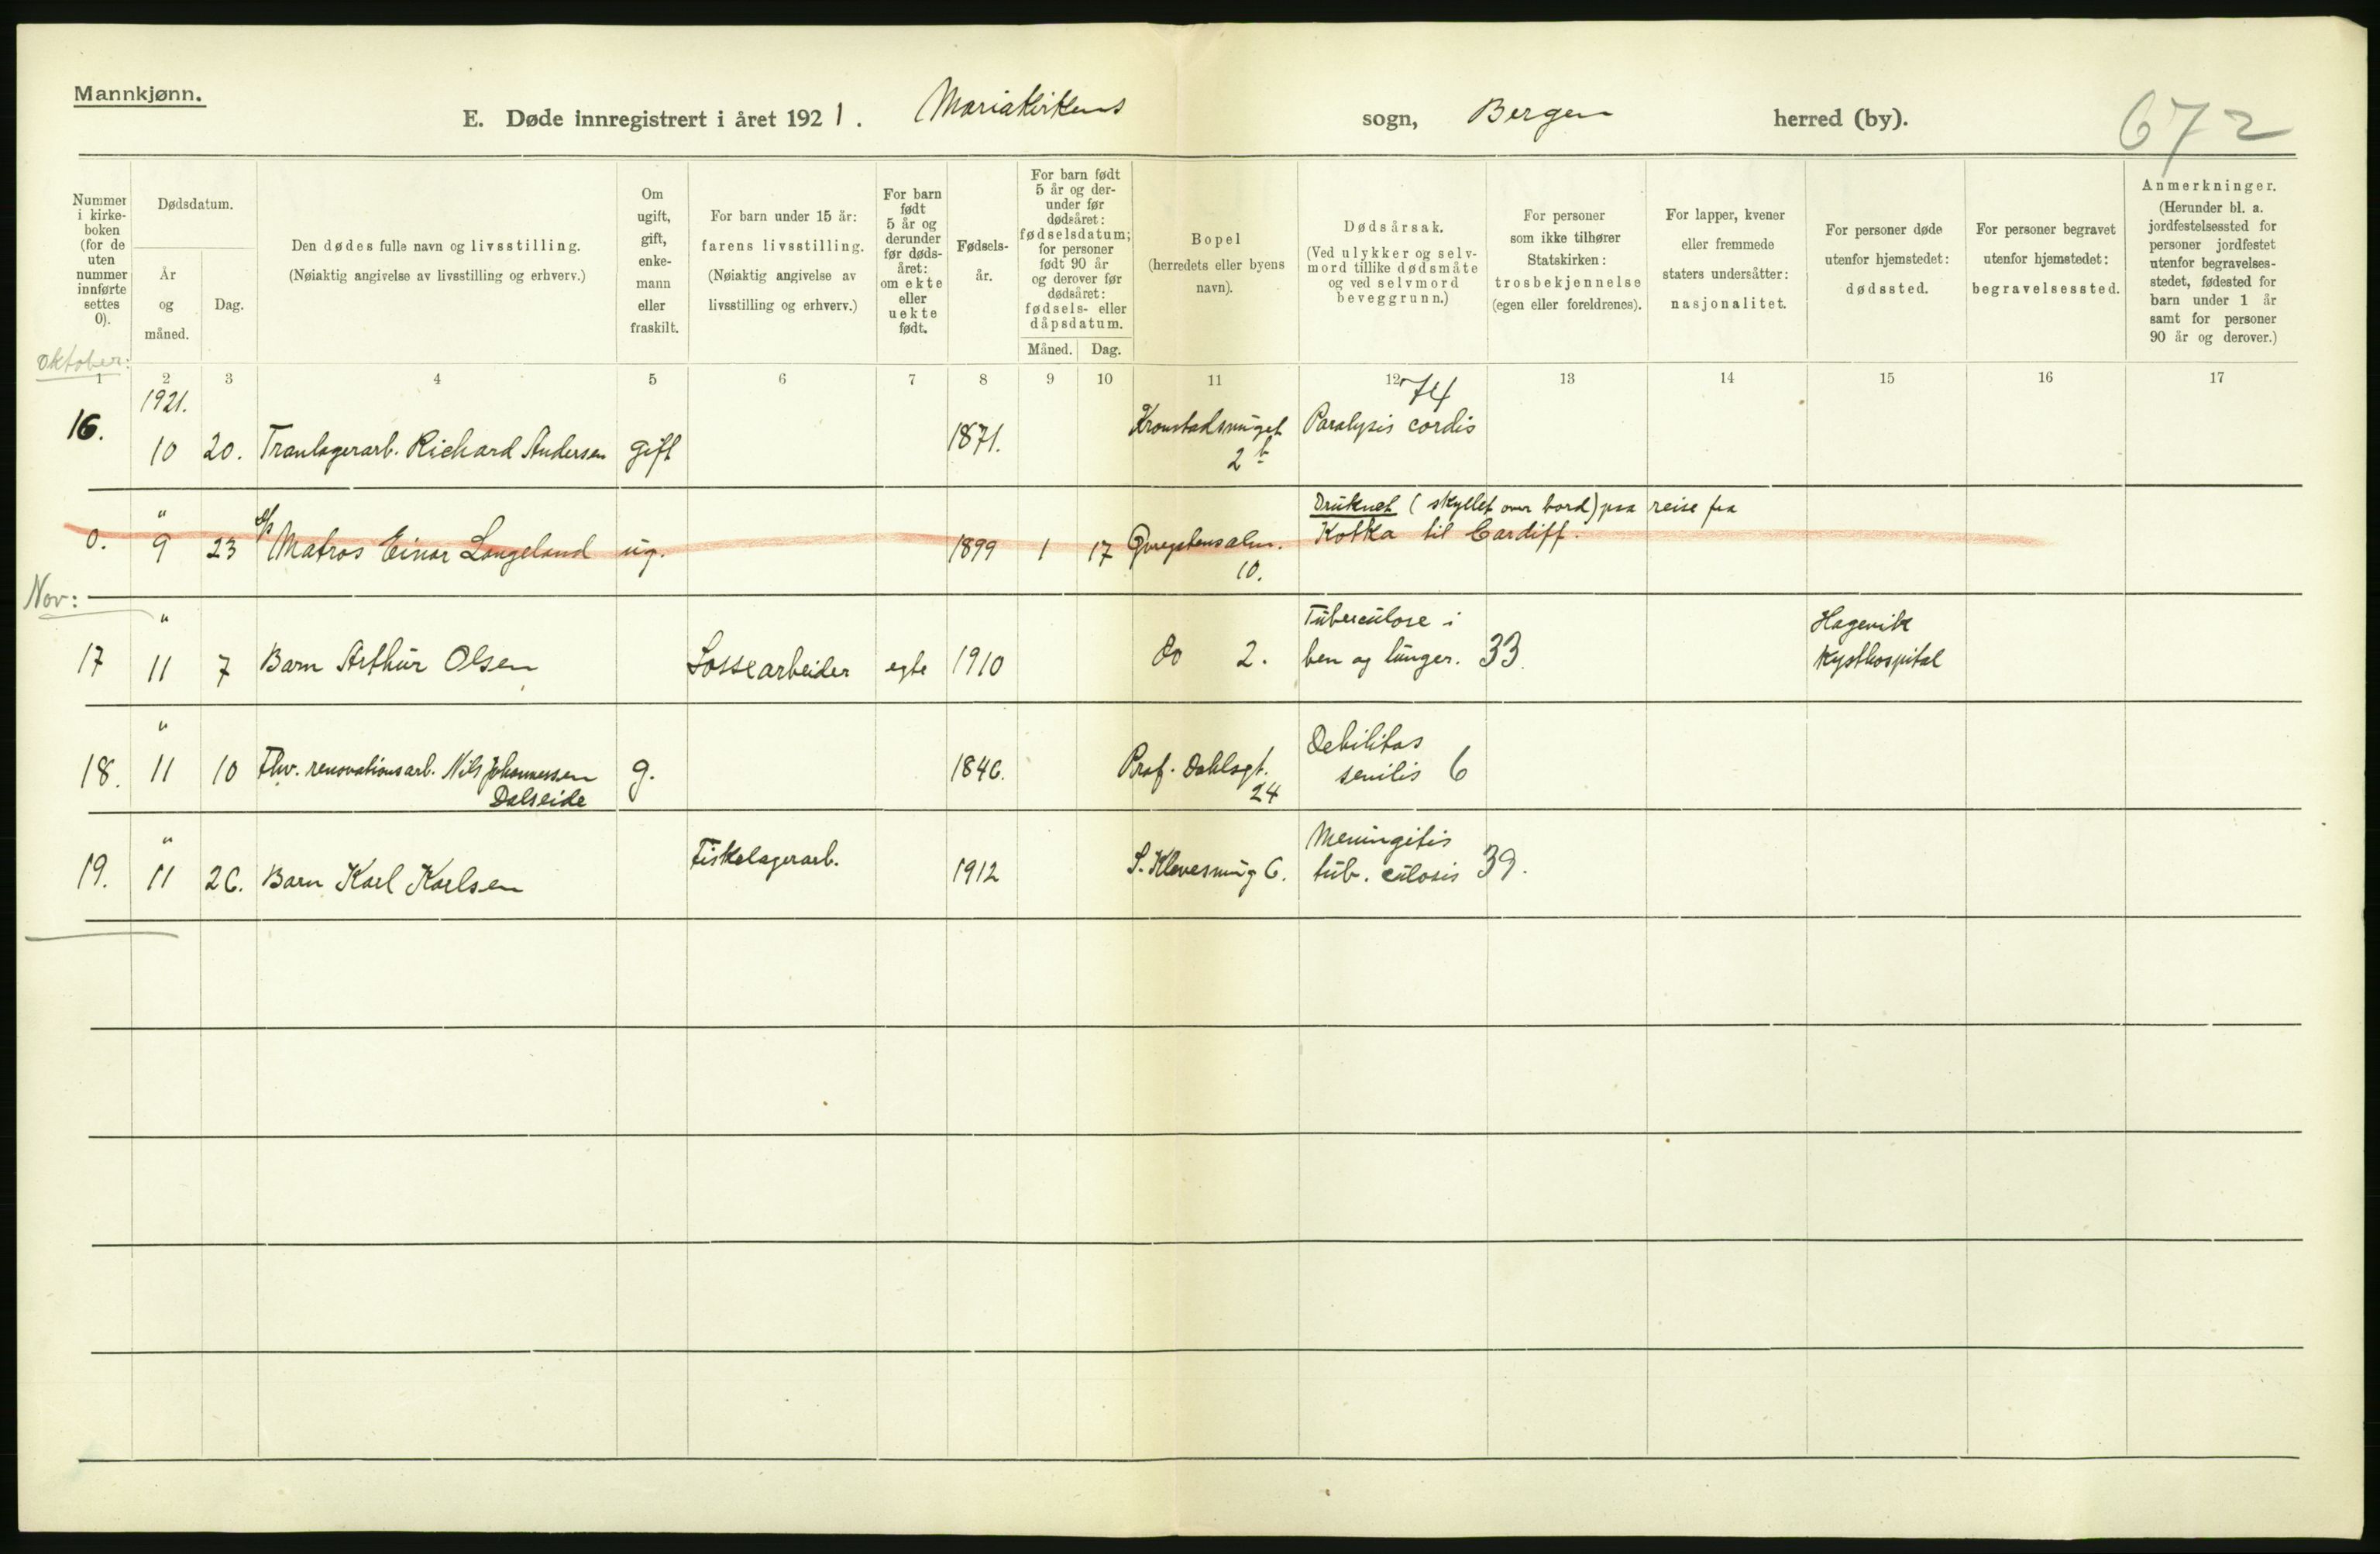 Mannkjønn.
E. Døde innregistrert i året 1921. Mariakirkens sogn, Bergen herred (by).
672
Nummer i kirkeboken (for de uten nummer innførte settes 0).
Dødsdatum.
År og måned.
Dag.
Den dødes fulle navn og livsstilling.
(Nøiaktig angivelse av livsstilling og erhverv.)
Om ugift, gift, enkemann eller fraskilt.
For barn under 15 år:
farens livsstilling.
(Nøiaktig angivelse av livsstilling og erhverv.)
For barn født 5 år og derunder før dødsåret: om ekte eller uekte født.
Fødselsår.
For barn født 5 år og derunder før dødsåret: fødselsdatum; for personer født 90 år og derover før dødsåret: fødsels- eller dåpsdatum.
Måned. Dag.
Bopel
(herredets eller byens navn).
Dødsårsak.
(Ved ulykker og selvmord tillike dødsmåte og ved selvmord beveggrunn.)
For personer som ikke tilhører Statskirken: trosbekjennelse (egen eller foreldrenes).
For lapper, kvener eller fremmede staters undersåtter: nasjonalitet.
For personer døde utenfor hjemstedet: dødssted.
For personer begravet utenfor hjemstedet: begravelsessted.
Anmerkninger.
(Herunder bl. a. jordfestelsessted for personer jordfestet utenfor begravelsesstedet, fødested for barn under 1 år samt for personer 90 år og derover.)
Oktober:
1 2 3 4 5 6 7 8 9 10 11 12 13 14 15 16 17
1921.
74
16. 10 20. Tranlagerarb. Richard Andersen gift 1871. Kronstadsmuget 2b Paralysis cordis
0. " 9 23 Matros Einar Langeland ug. 1899 1 17 10. Druknet (skyllet over bord) paa reise fra
Kotka til Cardiff.
Nov:
17 " 11 7 Barn Arthur Olsen Lossearbeider egte 1910 do 2. Tuberculose i
ben og lunger. 33. Hagevik
Kysthospital
18. " 11 10 Fhv. renovationsarb. Nils Johannessen
Dalseide g. 1846. Prof. Dahlsgt.
24 Debilitas
senilis 6
19. " 11 26. Barn Karl Karlsen Fiskelagerarb. 1912 S. Klevesmug 6. Meningitis
tub. culosis 39.